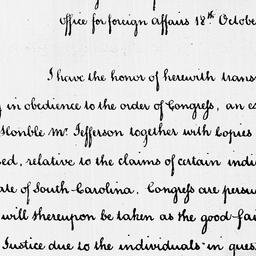 Office for foreign affairs 18th Octobe
I have the honor of herewith trans
in obedience to the order of Congreſs, an es
Honble Mr. Jefferson together with Copies
ed, relative to the claims of certain indi
ate of South-Carolina. Congreſs are persu
will thereupon be taken as the good fai
Justice due to the individuals in ques